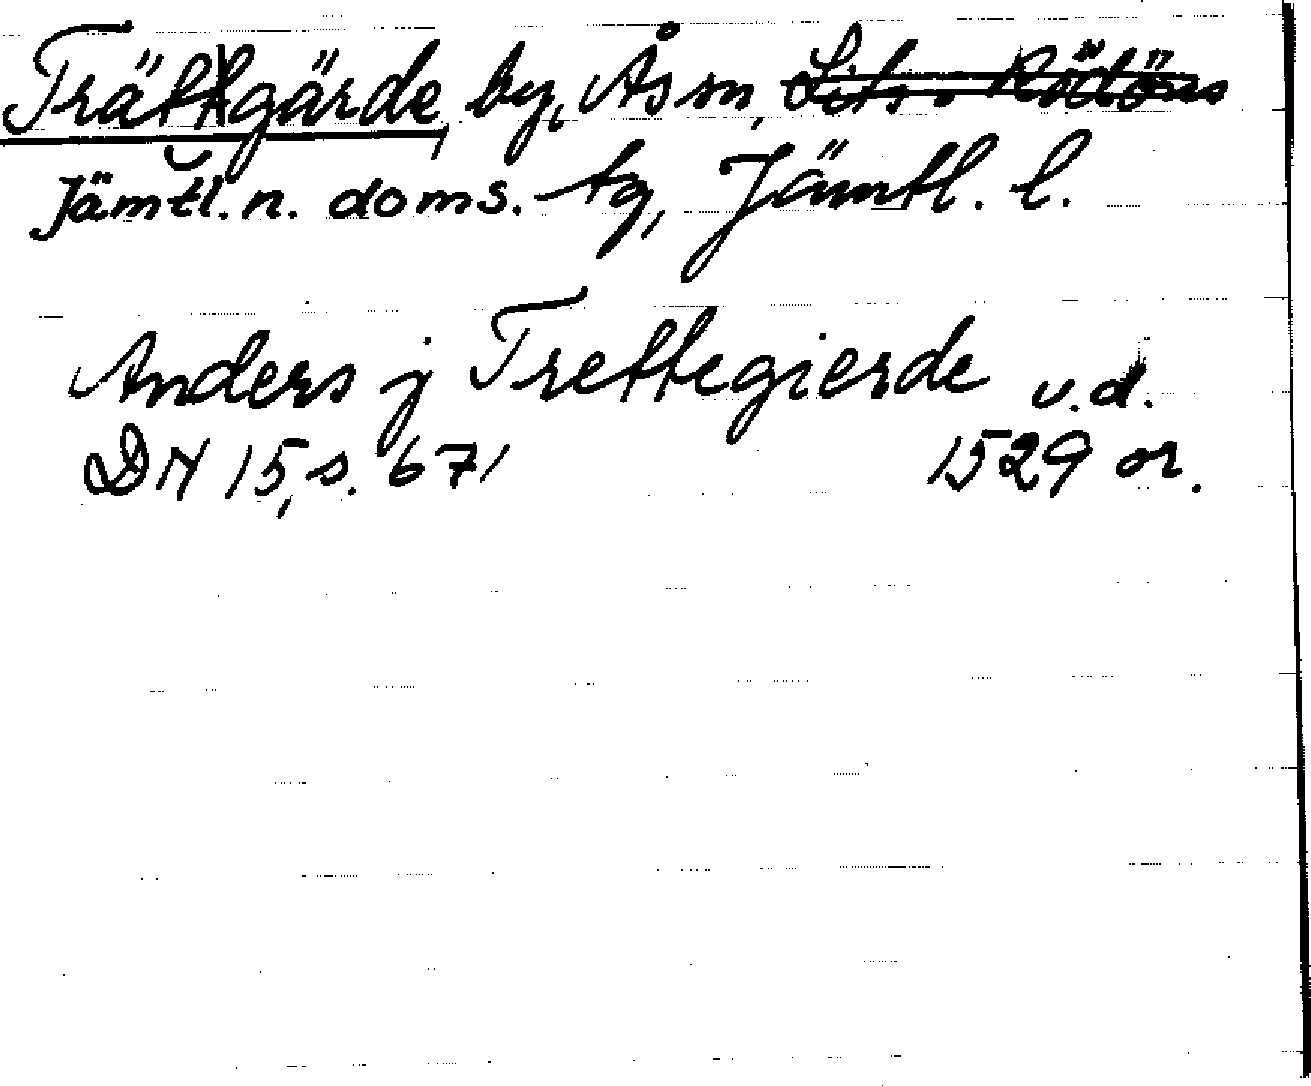 Trättgärde, by, Ås sn, Lits o Rödöns
Jämtl. n. doms. tg, Jämtl. l.
Anders j Trettegierde u.d.
DN 15, s. 671 1529 or.